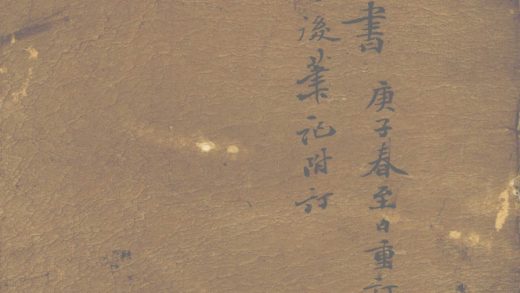 書 庚子春至日重訂
後葉記附訂